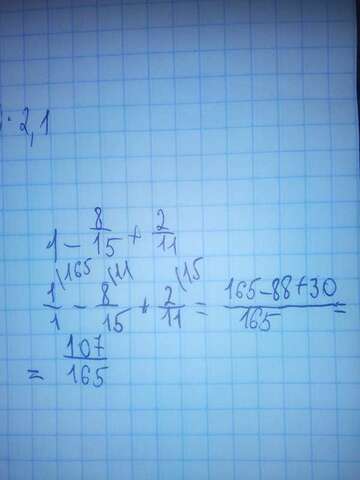 · 2,1
1 - 8/15 + 2/11
1/1 \165 - 8/15 \11 + 2/11 \15 = 165-88+30/165 =
= 107/165